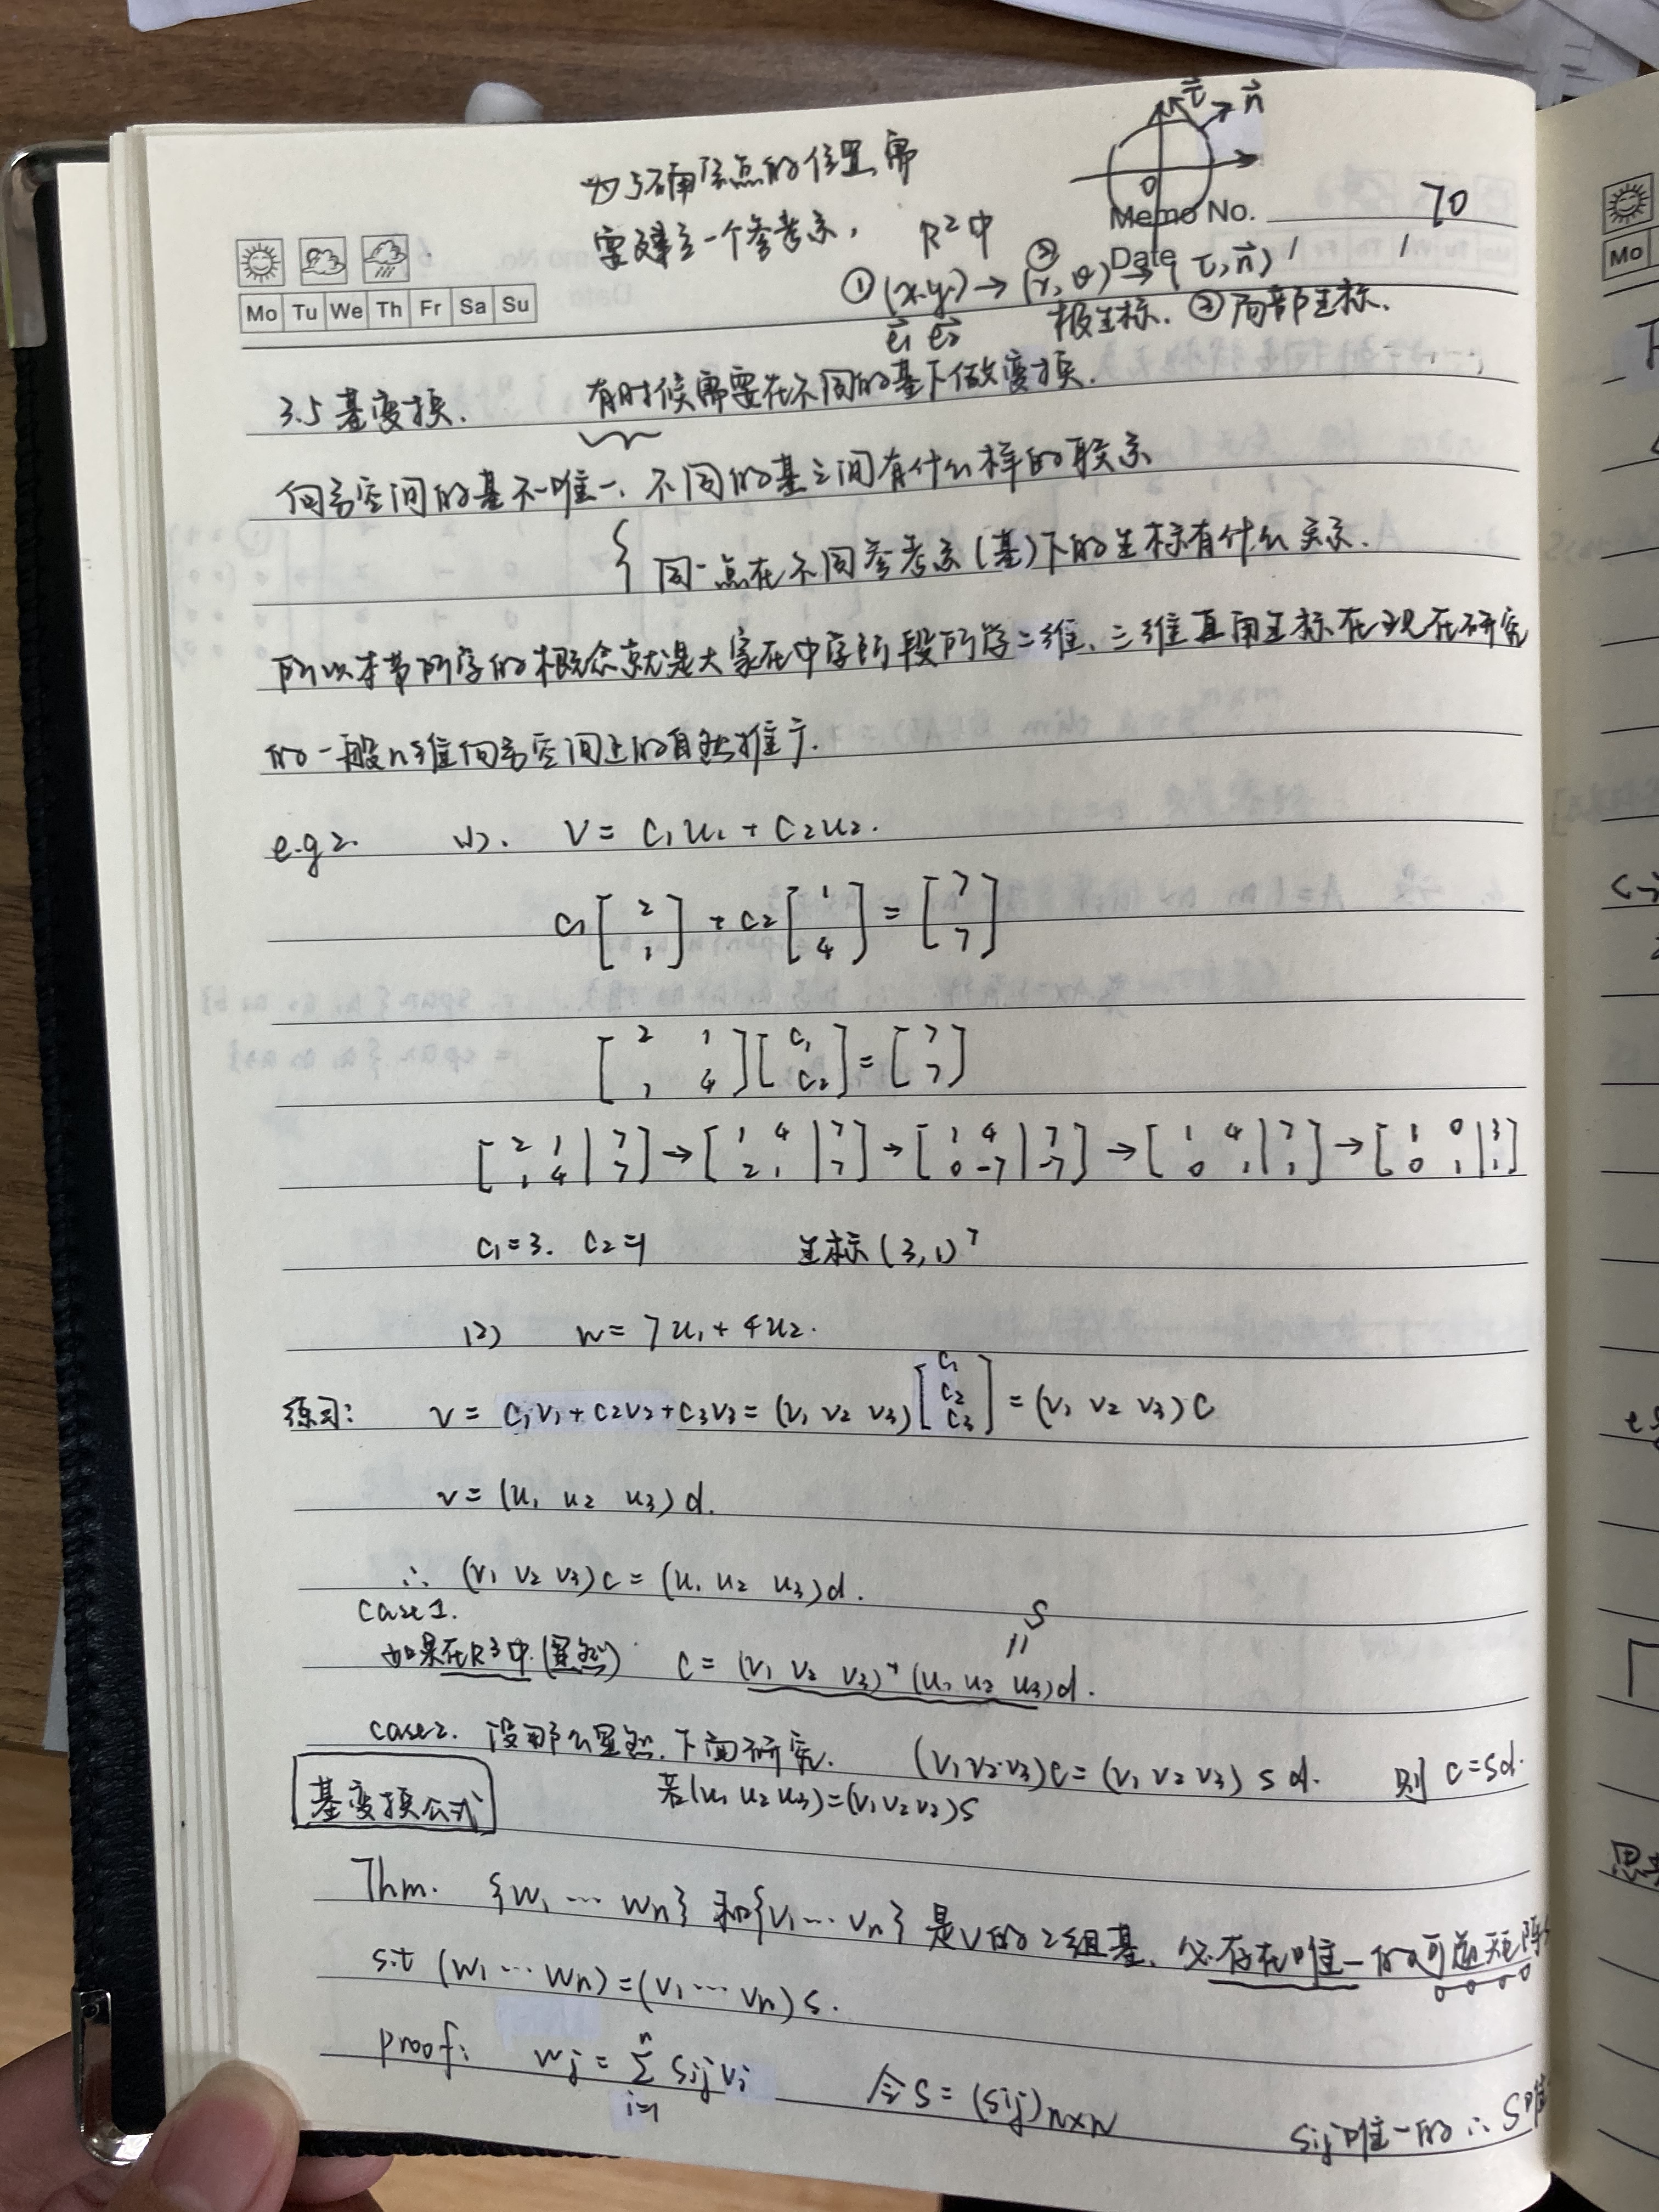 为了确定点的位置,需
要建立一个参考系, R²中
τ⃗ n⃗
0
Memo No. 70
Date / /
① (x.y) → ② (r, θ) → (τ, n⃗)
e⃗₁ e⃗₂ 极坐标. ③局部坐标.
Mo Tu We Th Fr Sa Su
3.5 基变换. 有时候需要在不同的基下做变换.
向量空间的基不唯一、不同的基之间有什么样的联系
{ 同一点在不同参考系(基)下的坐标有什么关系.
所以本节所学的概念就是大家在中学阶段所学二维、三维直角坐标在现在研究
的一般n维向量空间上的自然推广.
e.g 2. (1). V = C₁u₁ + C₂u₂.
C₁ [2 1] + C₂ [1 4] = [7 7]
[2 1 1 4] [C₁ C₂] = [7 7]
[2 1 | 7 1 4 | 7] → [1 4 | 7 2 1 | 7] → [1 4 | 7 0 -7 | -7] → [1 4 | 7 0 1 | 1] → [1 0 | 3 0 1 | 1]
C₁=3. C₂=1 坐标 (3,1)ᵀ
(2) w = 7u₁ + 4u₂.
练习: v = C₁v₁ + C₂v₂ + C₃v₃ = (v₁ v₂ v₃) [C₁ C₂ C₃] = (v₁ v₂ v₃) C
v = (u₁ u₂ u₃) d.
∴ (v₁ v₂ v₃) c = (u₁ u₂ u₃) d.
case 1. S
如果在R³中 (显然) C = (v₁ v₂ v₃)⁻¹ (u₁ u₂ u₃) d.
case 2. 没那么显然. 下面研究. (v₁ v₂ v₃) c = (v₁ v₂ v₃) s d. 则 c = sd.
若(u₁ u₂ u₃) = (v₁ v₂ v₂) s
基变换公式
Thm. {w₁ ⋯ wn} 和 {v₁ ⋯ vn} 是V的2组基、必存在唯一的可逆矩阵
s.t (w₁ ⋯ wn) = (v₁ ⋯ vn) s.
proof: wj = Σⁿᵢ₌₁ sij vi 令 S = (sij)n×n
sij唯一的 ∴ S唯